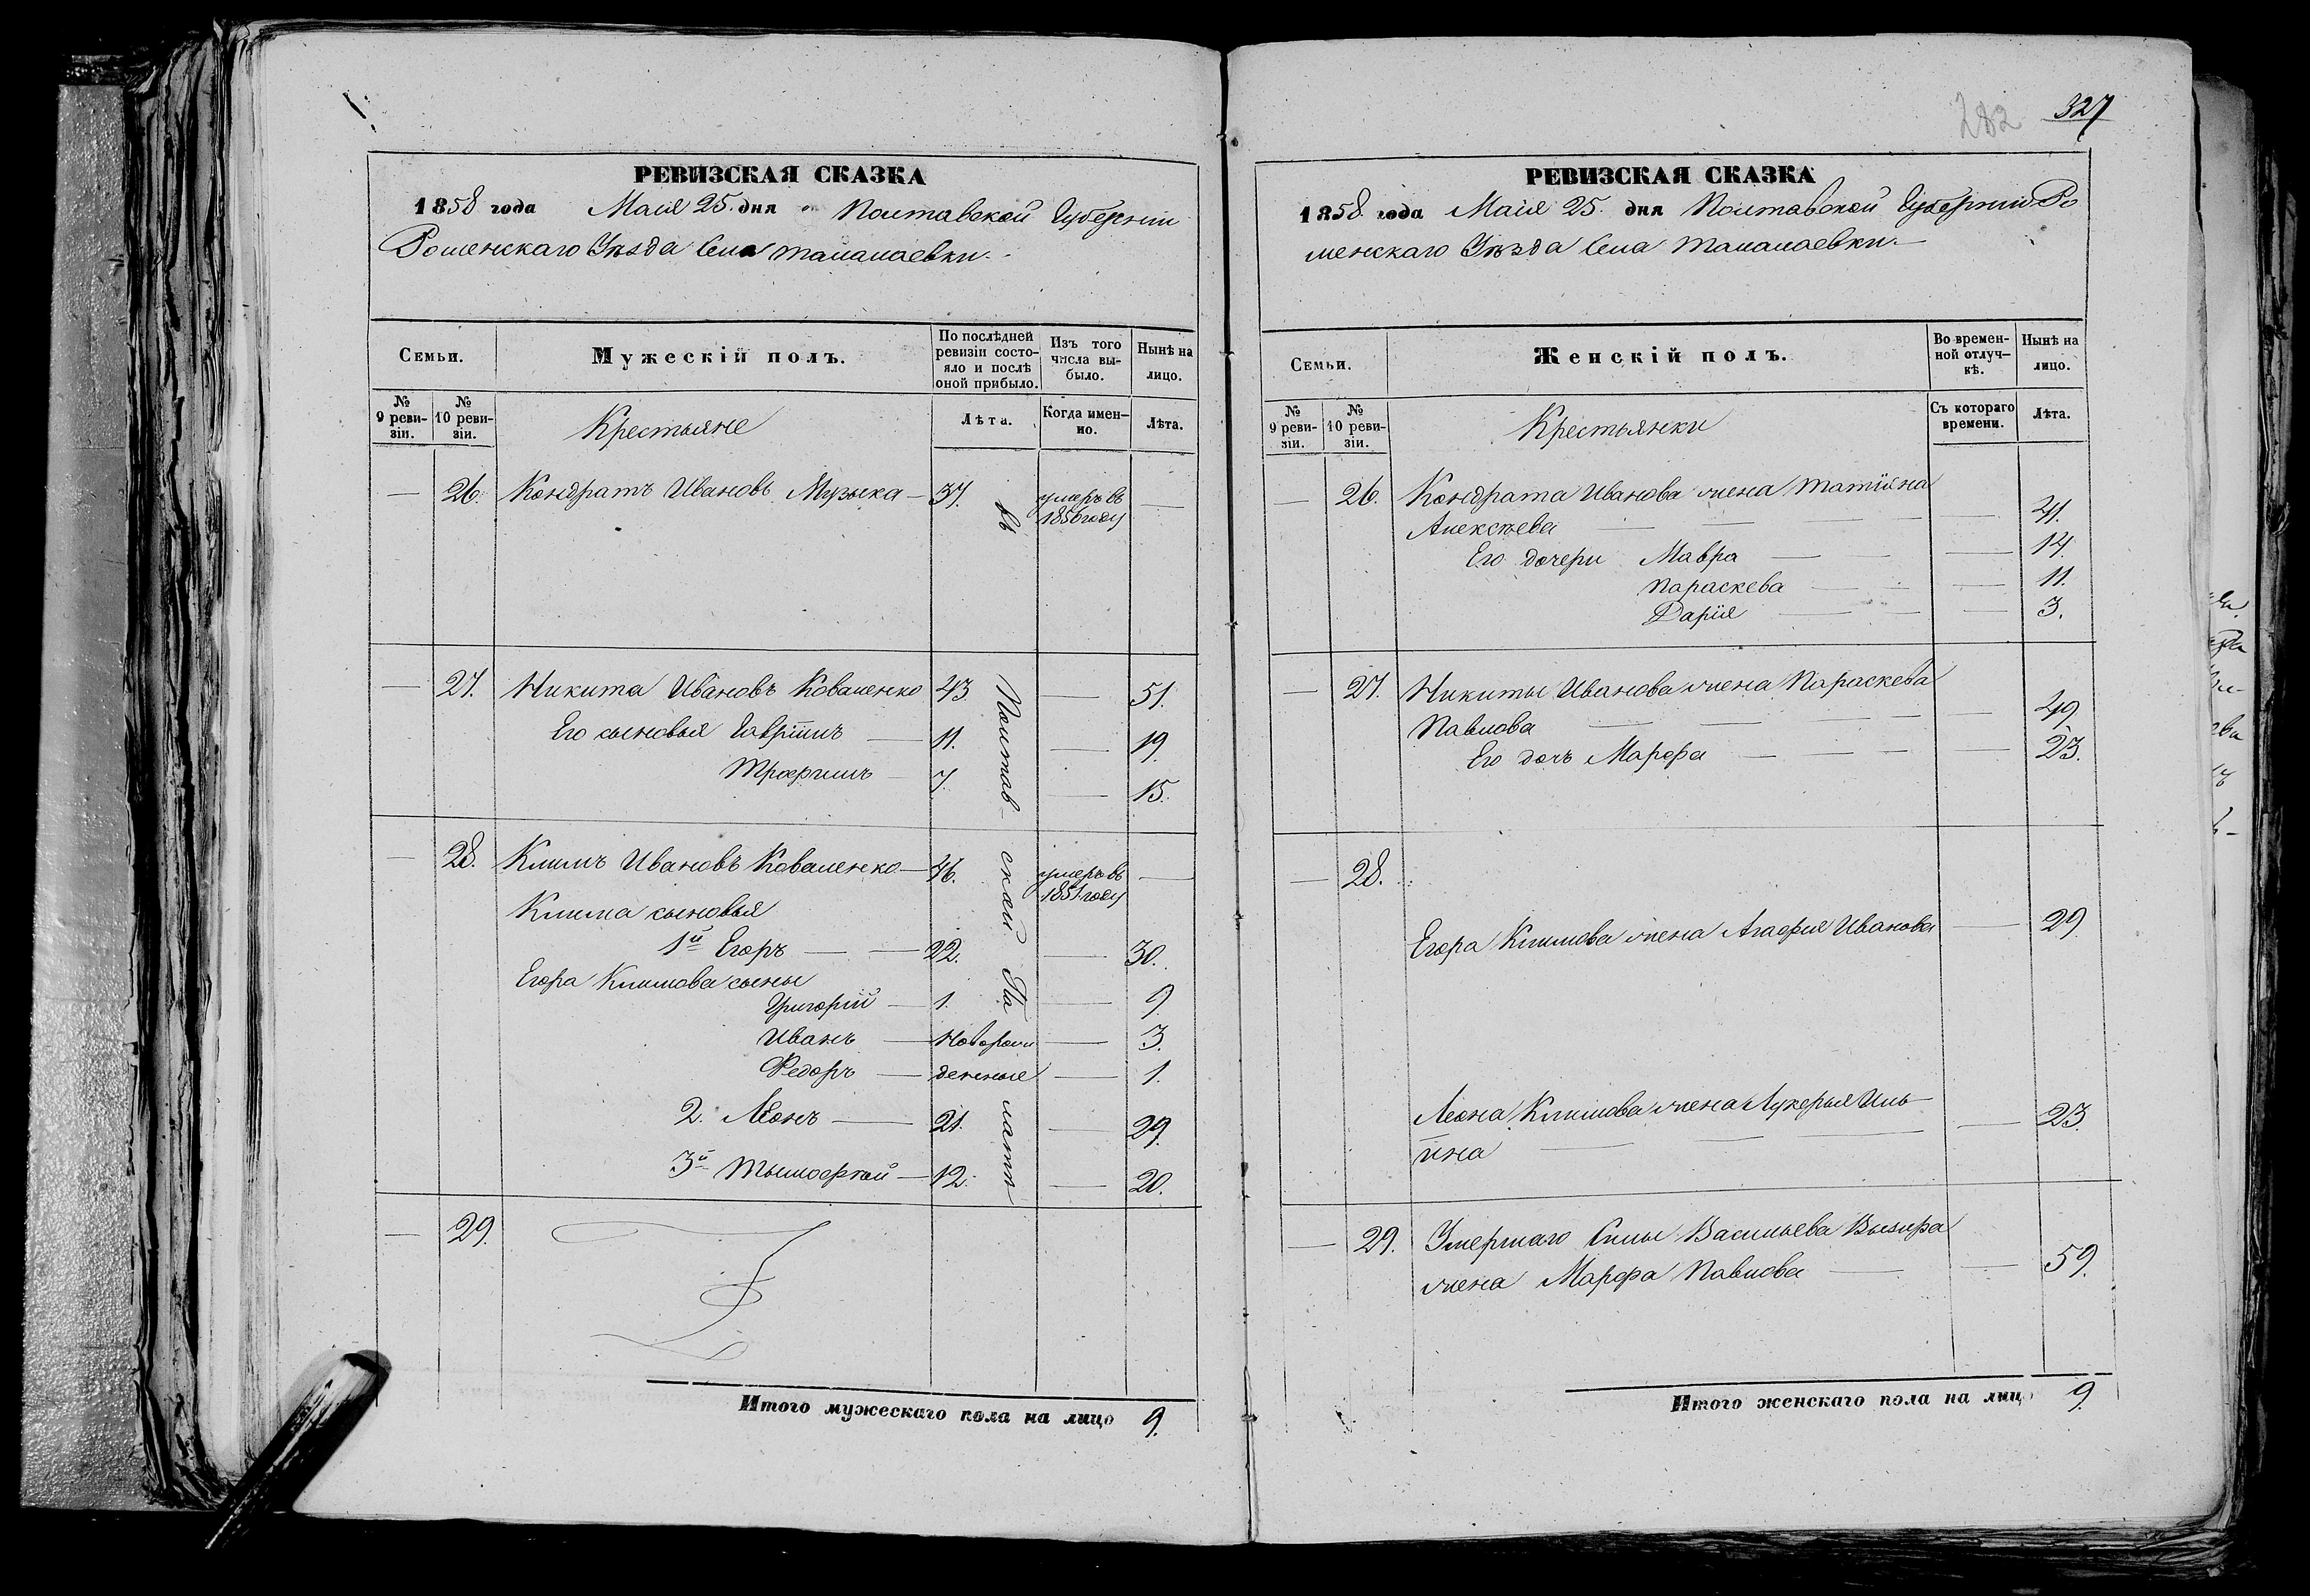 РЕВИЗСКАЯ СКАЗКА
1858 года Маія 25. дня Полтавской Губерніи
Роменскаго Уѣзда Села Талалаевки.
Семьи.
Мужескій полъ.
По послѣдней ревизіи состояло и послѣ оной прибыло.
Изъ того числа выбыло.
Нынѣ на лицо.
№ 9 ревизіи.
№ 10 ревизіи.
Крестьяне
Лѣта.
Когда именно.
Лѣта.
— 26. Кондратъ Ивановъ Музыка — 37. умеръ въ 1856 году —
— 27. Никита Ивановъ Коваленко 43. — 51.
Его сыновья Гавріилъ — 11. — 19.
Трофимъ — 7. — 15.
— 28. Климъ Ивановъ Коваленко — 46. умеръ въ 1851 году —
Клима сыновья
1й Егоръ — 22. — 30.
Егора Климова сыны
Григорій — 1. — 9.
Иванъ — Новорож — 3.
Федоръ — денные — 1.
2. Леонъ — 21. — 29.
3й Тымофтей — 12. — 20.
Въ Полтавской Палатѣ
— 29.
Итого мужескаго пола на лицо 9.
282
327
РЕВИЗСКАЯ СКАЗКА
1858 года Маія 25. дня Полтавской Губерніи Ро
менскаго Уѣзда Села Талалаевки.—
Семьи.
Женскій полъ.
Во временной отлучкѣ.
Нынѣ на лицо.
№ 9 ревизіи.
№ 10 ревизіи.
Крестьянки
Съ котораго времени.
Лѣта.
— 26. Кондрата Иванова жена Татіяна
Алексѣева — — 41.
Его дочери Мавра — — 14.
Параскева — — 11.
Дарія — — 3.
— 27. Никиты Иванова жена Параскева
Павлова — — 49.
Его дочь Марфа — — 23.
— 28.
Егора Климова жена Агафія Иванова — 29.
Леона Климова жена Лукерья Иль
ина — — 23.
— 29. Умершаго Силы Васильева Вызира
жена Марфа Павлова — — 59.
Итого женскаго пола на лицо 9.